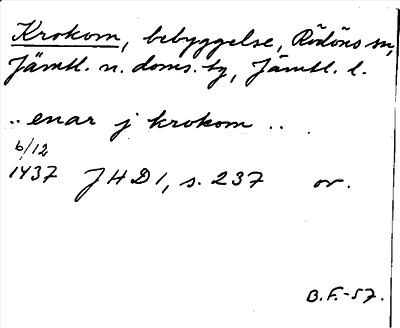 Krokom, bebyggelse, Rödöns sn,
Jämtl. n. doms. tg, Jämtl. l.
.. enar j krokom ..
6/12
1437 JHD 1, s. 237 or.
B.F.-57.